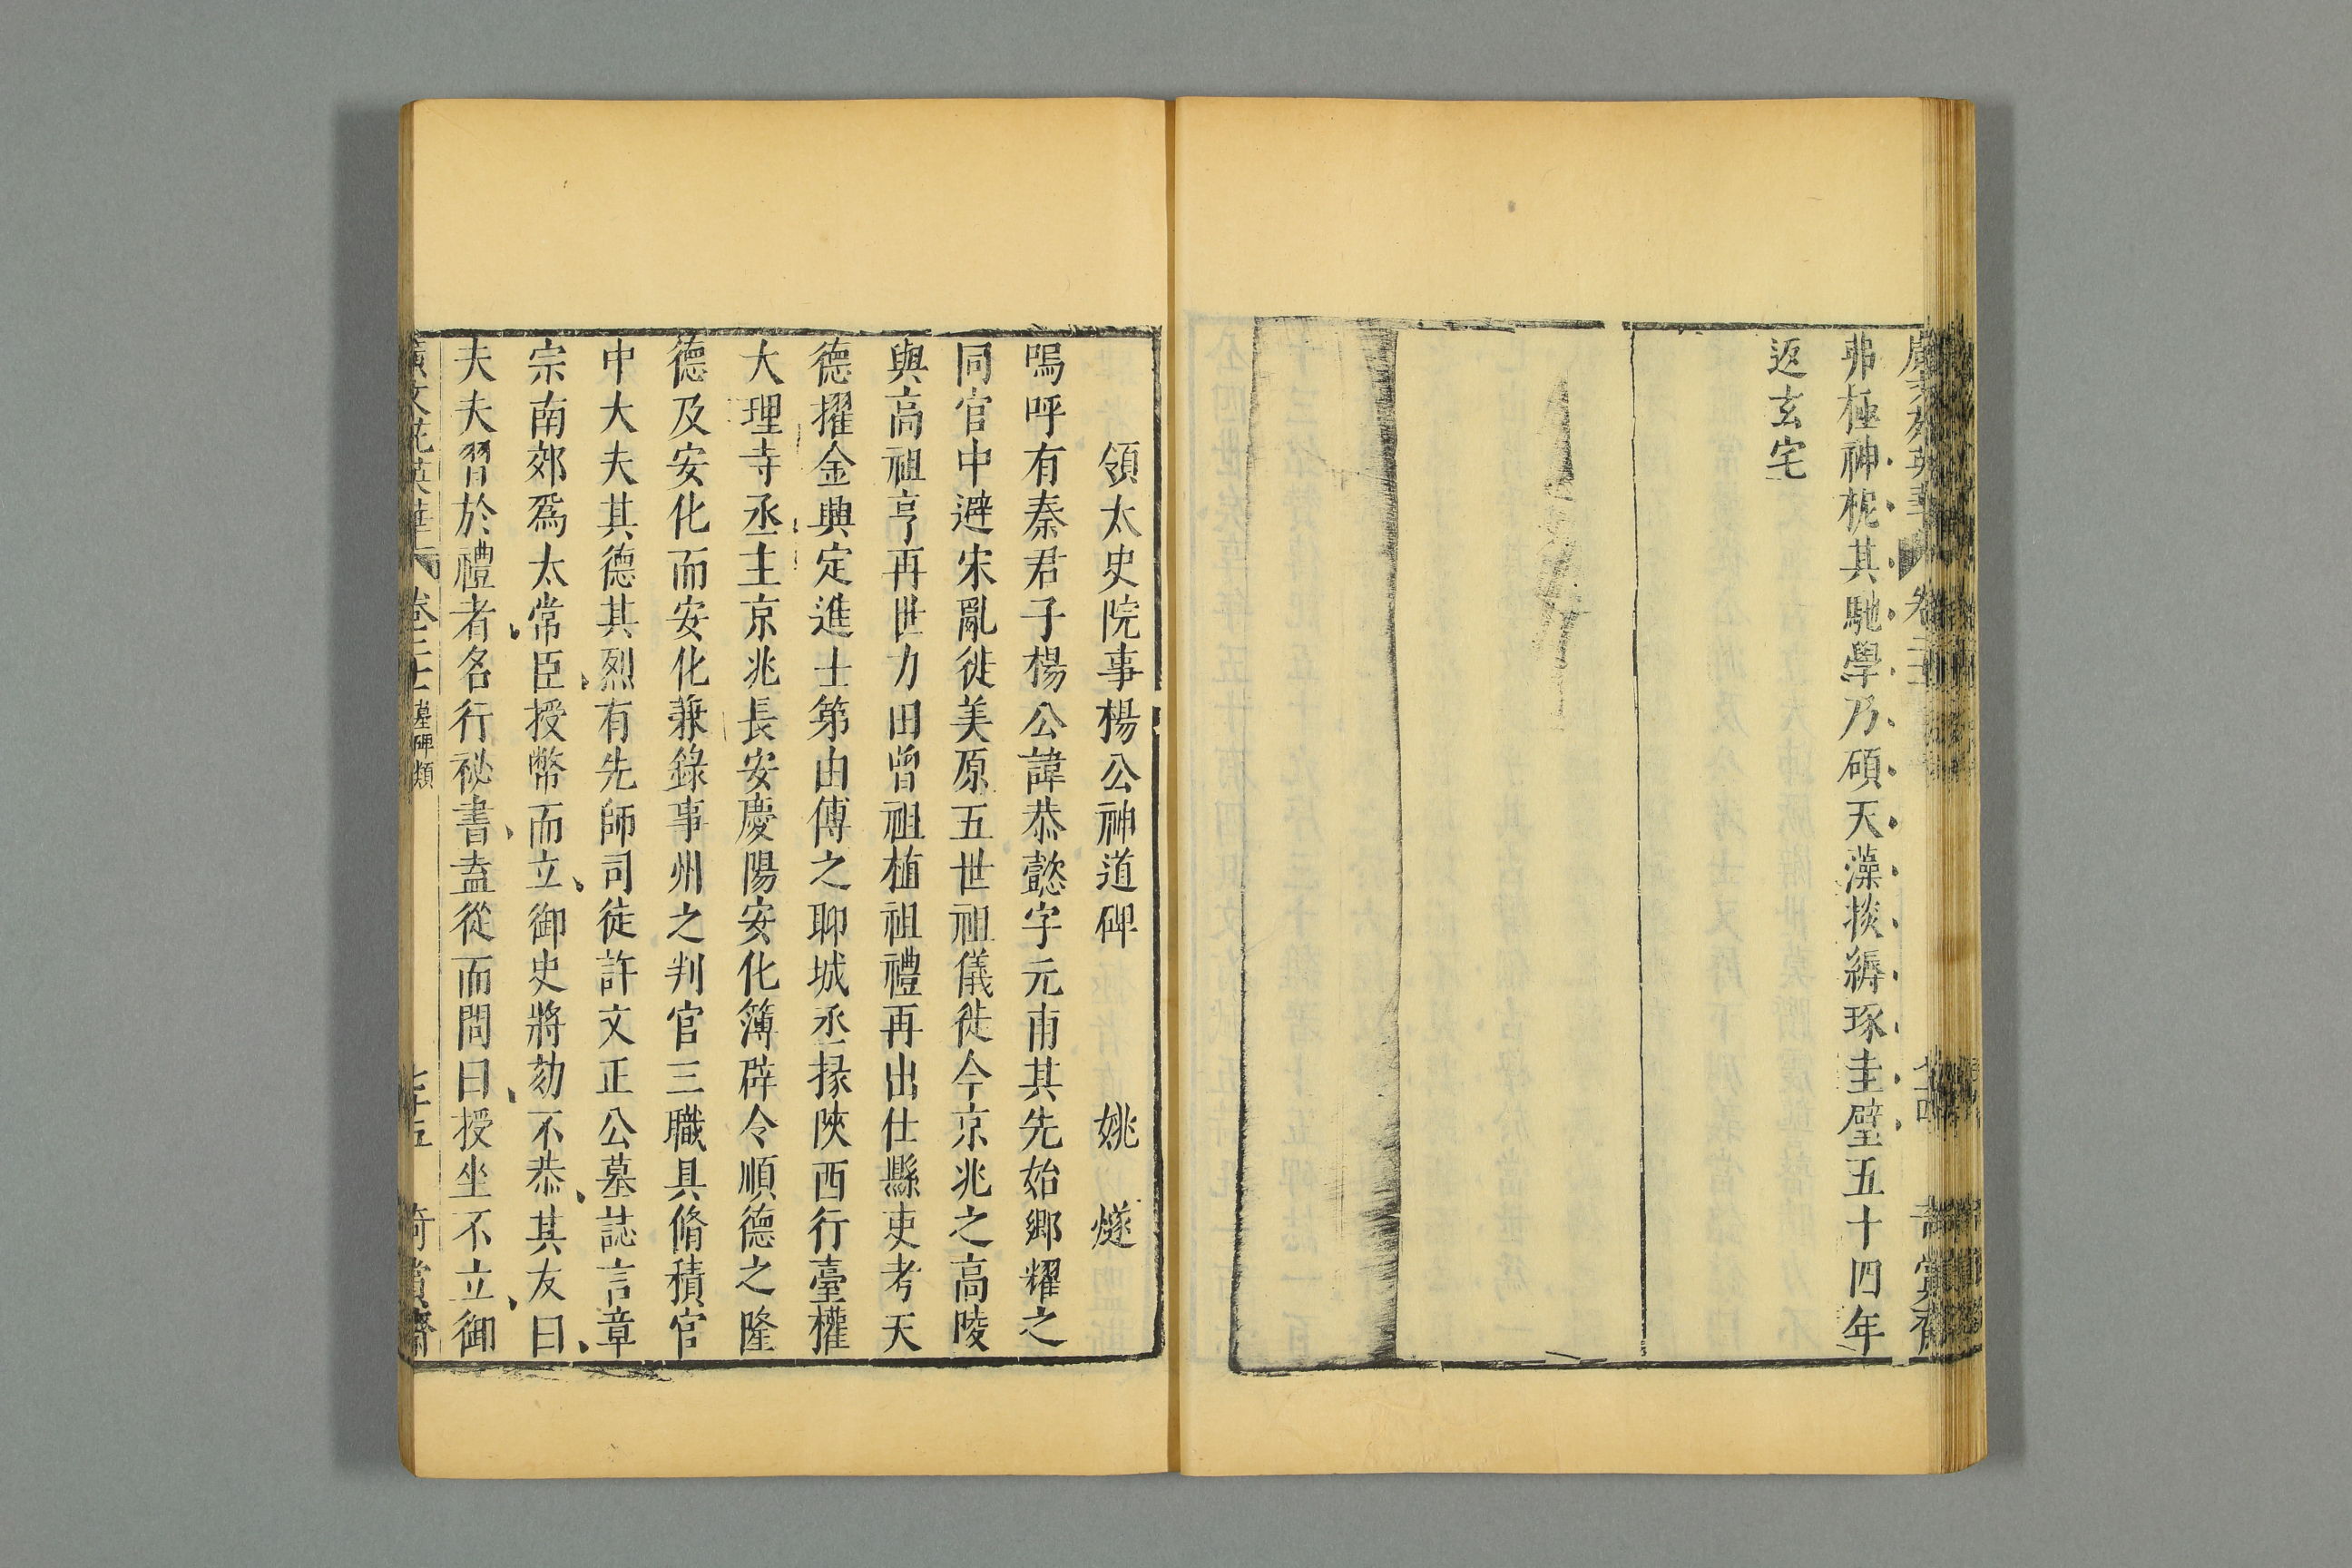 弗極神柅其馳學乃碩天藻掞縟琢圭璧五十四年
返玄宅
領太史院事楊公神道碑 姚燧
嗚呼有秦君子楊公諱恭懿字元甫其先始鄉耀之
同官中避宋亂徙美原五世祖儀徙今京兆之高陵
與高祖亨再世力田曾祖植祖禮再出仕縣吏考天
德擢金興定進士第由傅之聊城丞掾陜西行臺權
大理寺丞主京兆長安慶陽安化簿辟令順德之隆
德及安化而安化兼錄事州之判官三職具脩積官
中大夫其德其烈有先師司徒許文正公墓誌言章
宗南郊爲太常臣授幣而立御史將劾不恭其友曰
夫夫習於禮者名行祕書盍從而問曰授坐不立御
廣文苑英華 卷二十 墓碑類 七十五 奇賞齋